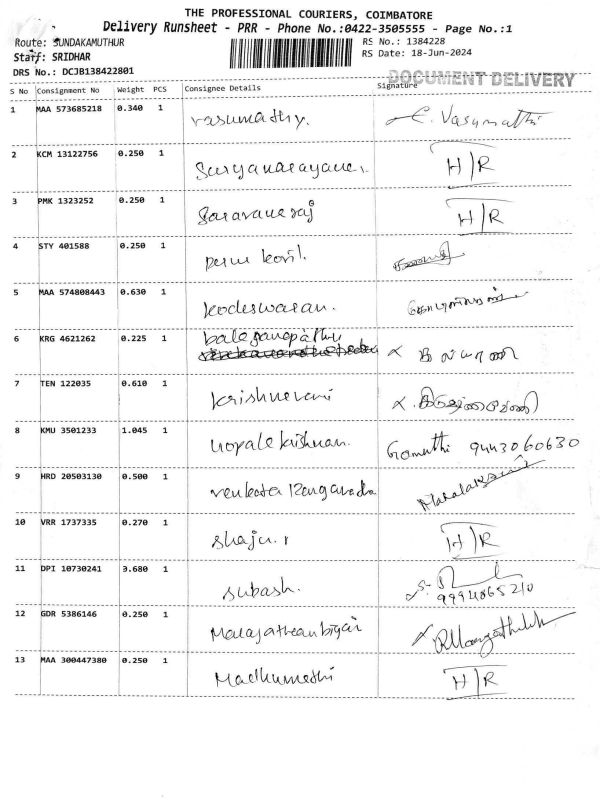 THE PROFESSIONAL COURIERS, COIMBATORE
Delivery Runsheet - PRR - Phone No.:0422-3505555 - Page No.:1
Route: SUNDAKAMUTHUR
RS No.: 1384228
Staff: SRIDHAR
RS Date: 18-Jun-2024
DRS No.: DCJB138422801
DOCUMENT DELIVERY
S No Consignment No Weight PCS Consignee Details Signature
1 MAA 573685218 0.340 1 vasumathy. E. Vasumathi
2 KCM 13122756 0.250 1 Suryanarayanan. H/R
3 PMK 1323252 0.250 1 Saravanaraj H/R
4 STY 401588 0.250 1 Perur kovil.
5 MAA 574808443 0.630 1 kodeswaran.
6 KRG 4621262 0.225 1 balaganapathy
7 TEN 122035 0.610 1 krishnaveni
8 KMU 3501233 1.045 1 Gopalakrishnan. Gomathi 9443060630
9 HRD 20503130 0.500 1 venkata
10 VRR 1737335 0.270 1 shaju. H/R
11 DPI 10730241 3.680 1 subash. 9994865210
12 GDR 5386146 0.250 1
13 MAA 300447380 0.250 1 Madhumathi H/R